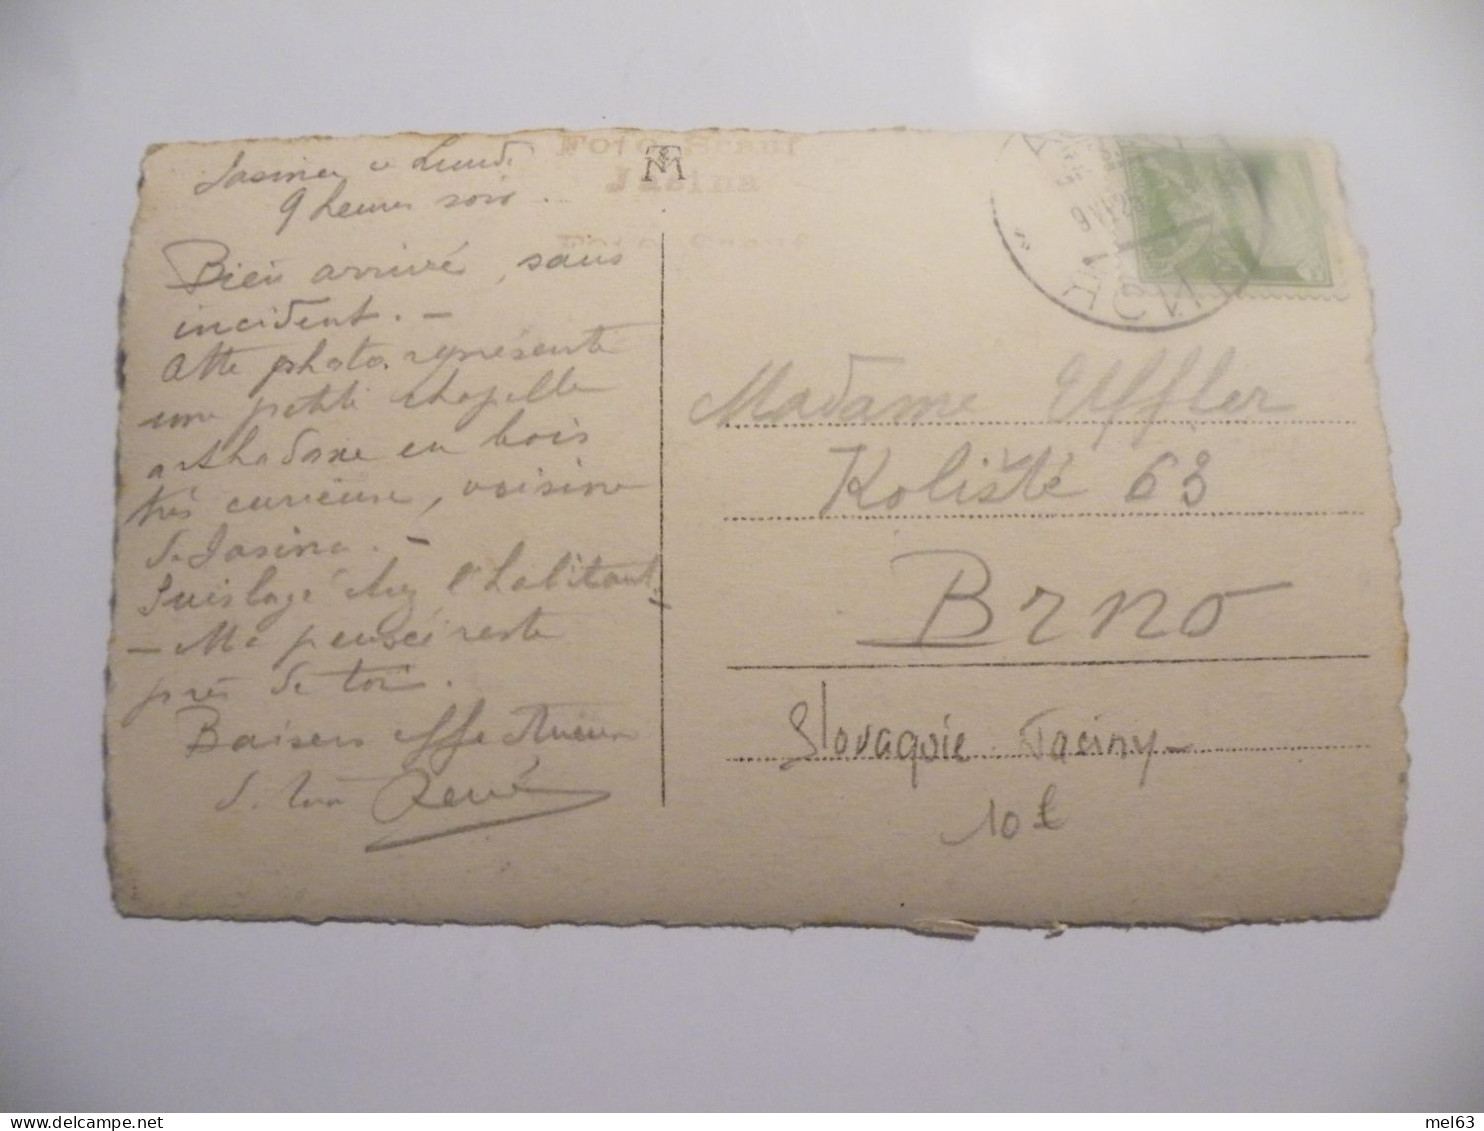 Jasina ce Lundi
9 heures soir.
Foto Strauf
Jasina
Foto Strauf
Bien arrivé, sans
incident. –
Cette photo représente
une petite chapelle
orthodoxe en bois
très curieuse, voisine
de Jasina. –
Suis logé chez l'habitant.
– Ma pensée reste
près de toi.
Baisers affectueux
de ton René
Madame Uffler
Koliště 63
Brno
Slovaquie Jaciny
10 €
delcampe.net
mel63